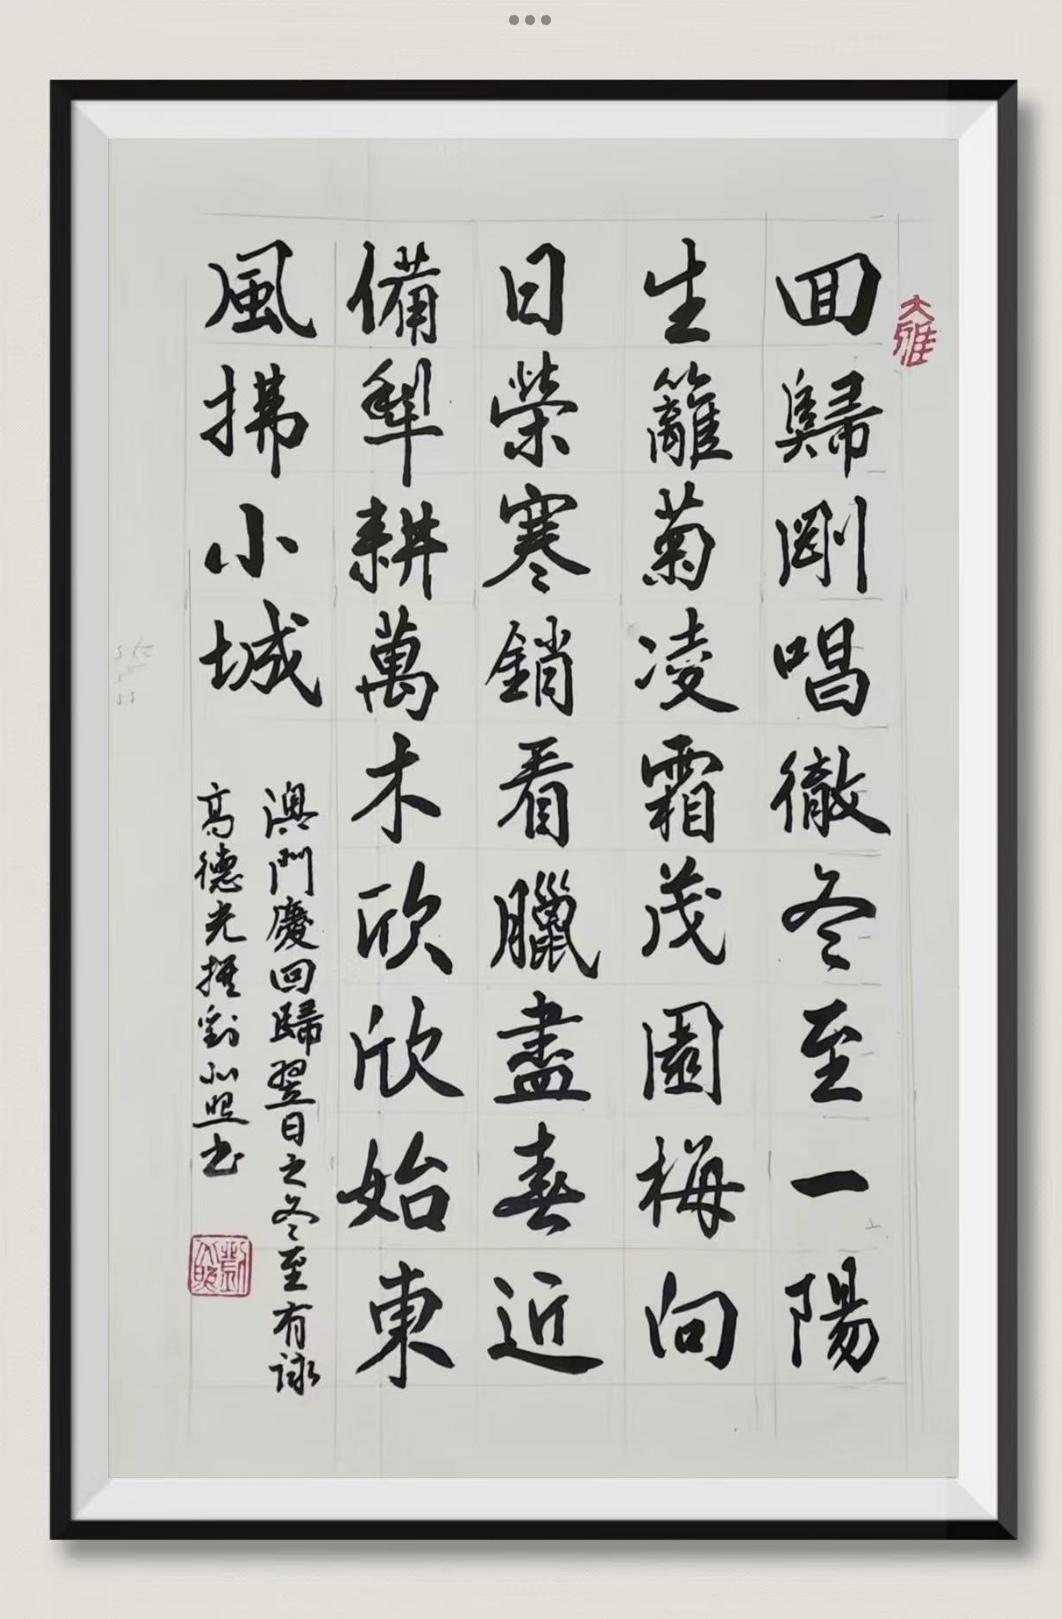 大雅
回歸剛唱徹冬至一陽
生籬菊凌霜茂園梅向
日榮寒銷看臘盡春近
備犁耕萬木欣欣始東
風拂小城
澳門慶回歸翌日之冬至有詠
高德光撰劉照书